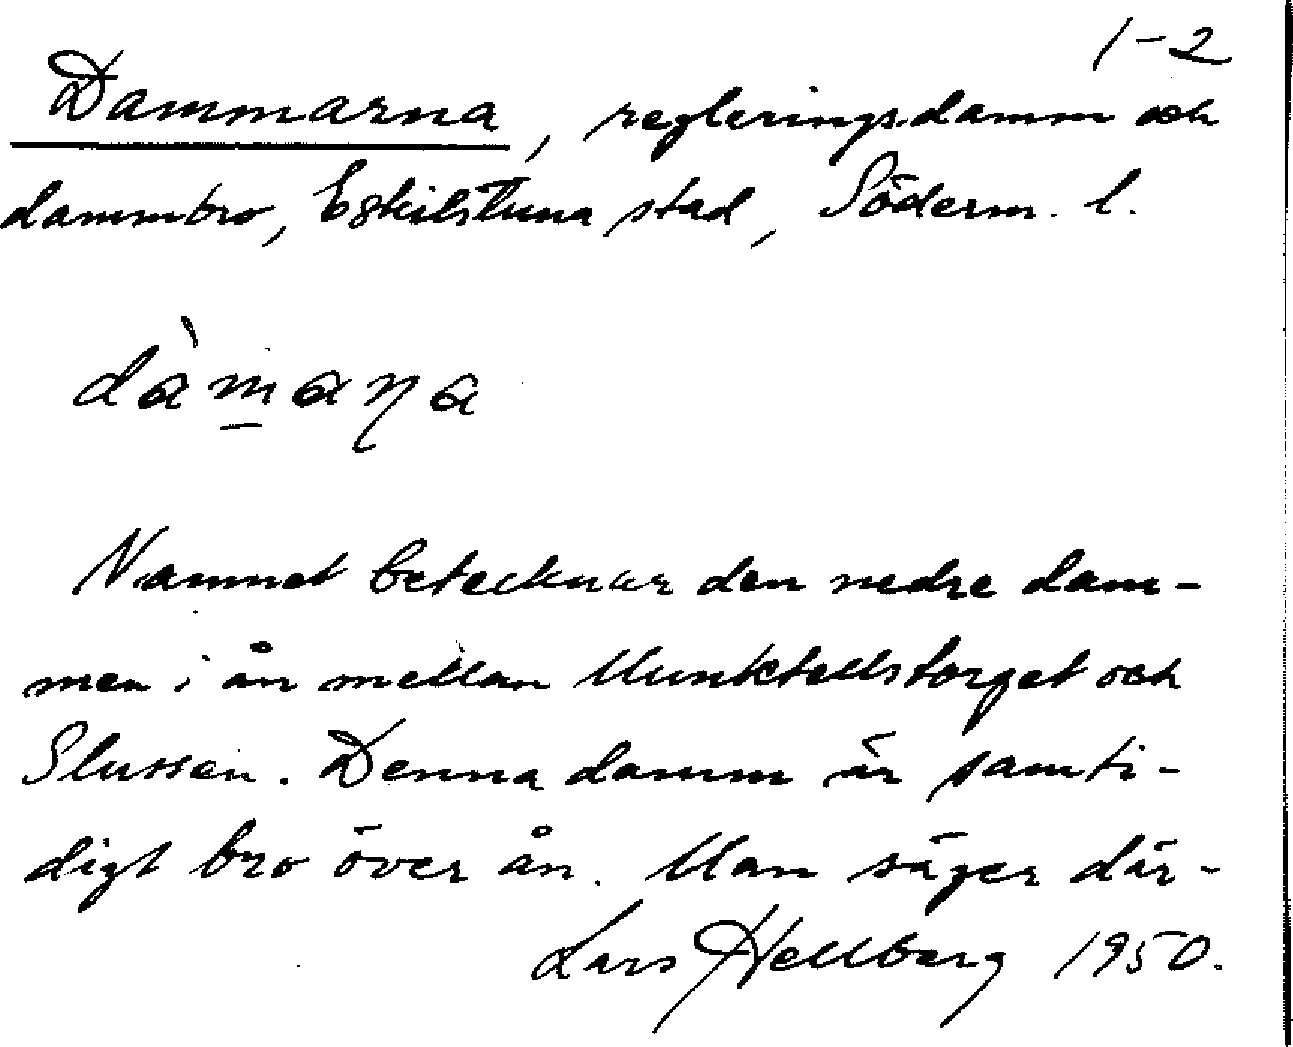 1-2
Dammarna, regleringsdamm och
dammbro, Eskilstuna stad, Söderm. l.
dàmaɳa
Namnet betecknar den nedre dam-
men i ån mellan Munktellstorget och
Slussen. Denna damm är samti-
digt bro över ån. Man säger där-
Lars Hellberg 1950.